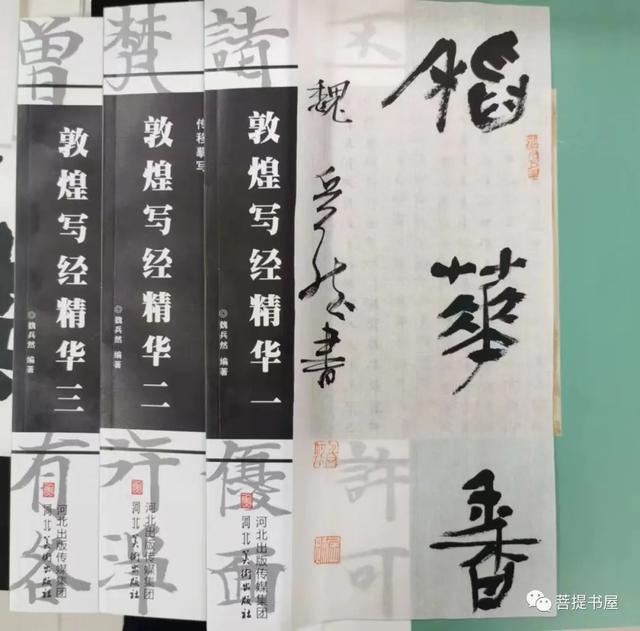 曾
敦煌写经精华三
◎魏兵然 编著
有
河北出版传媒集团
河北美术出版社
梵
传移摹写
敦煌写经精华二
◎魏兵然 编著
河北出版传媒集团
河北美术出版社
請
敦煌写经精华一
◎魏兵然 编著
優面
河北出版传媒集团
河北美术出版社
稻華香
魏兵然書
許可
菩提书屋